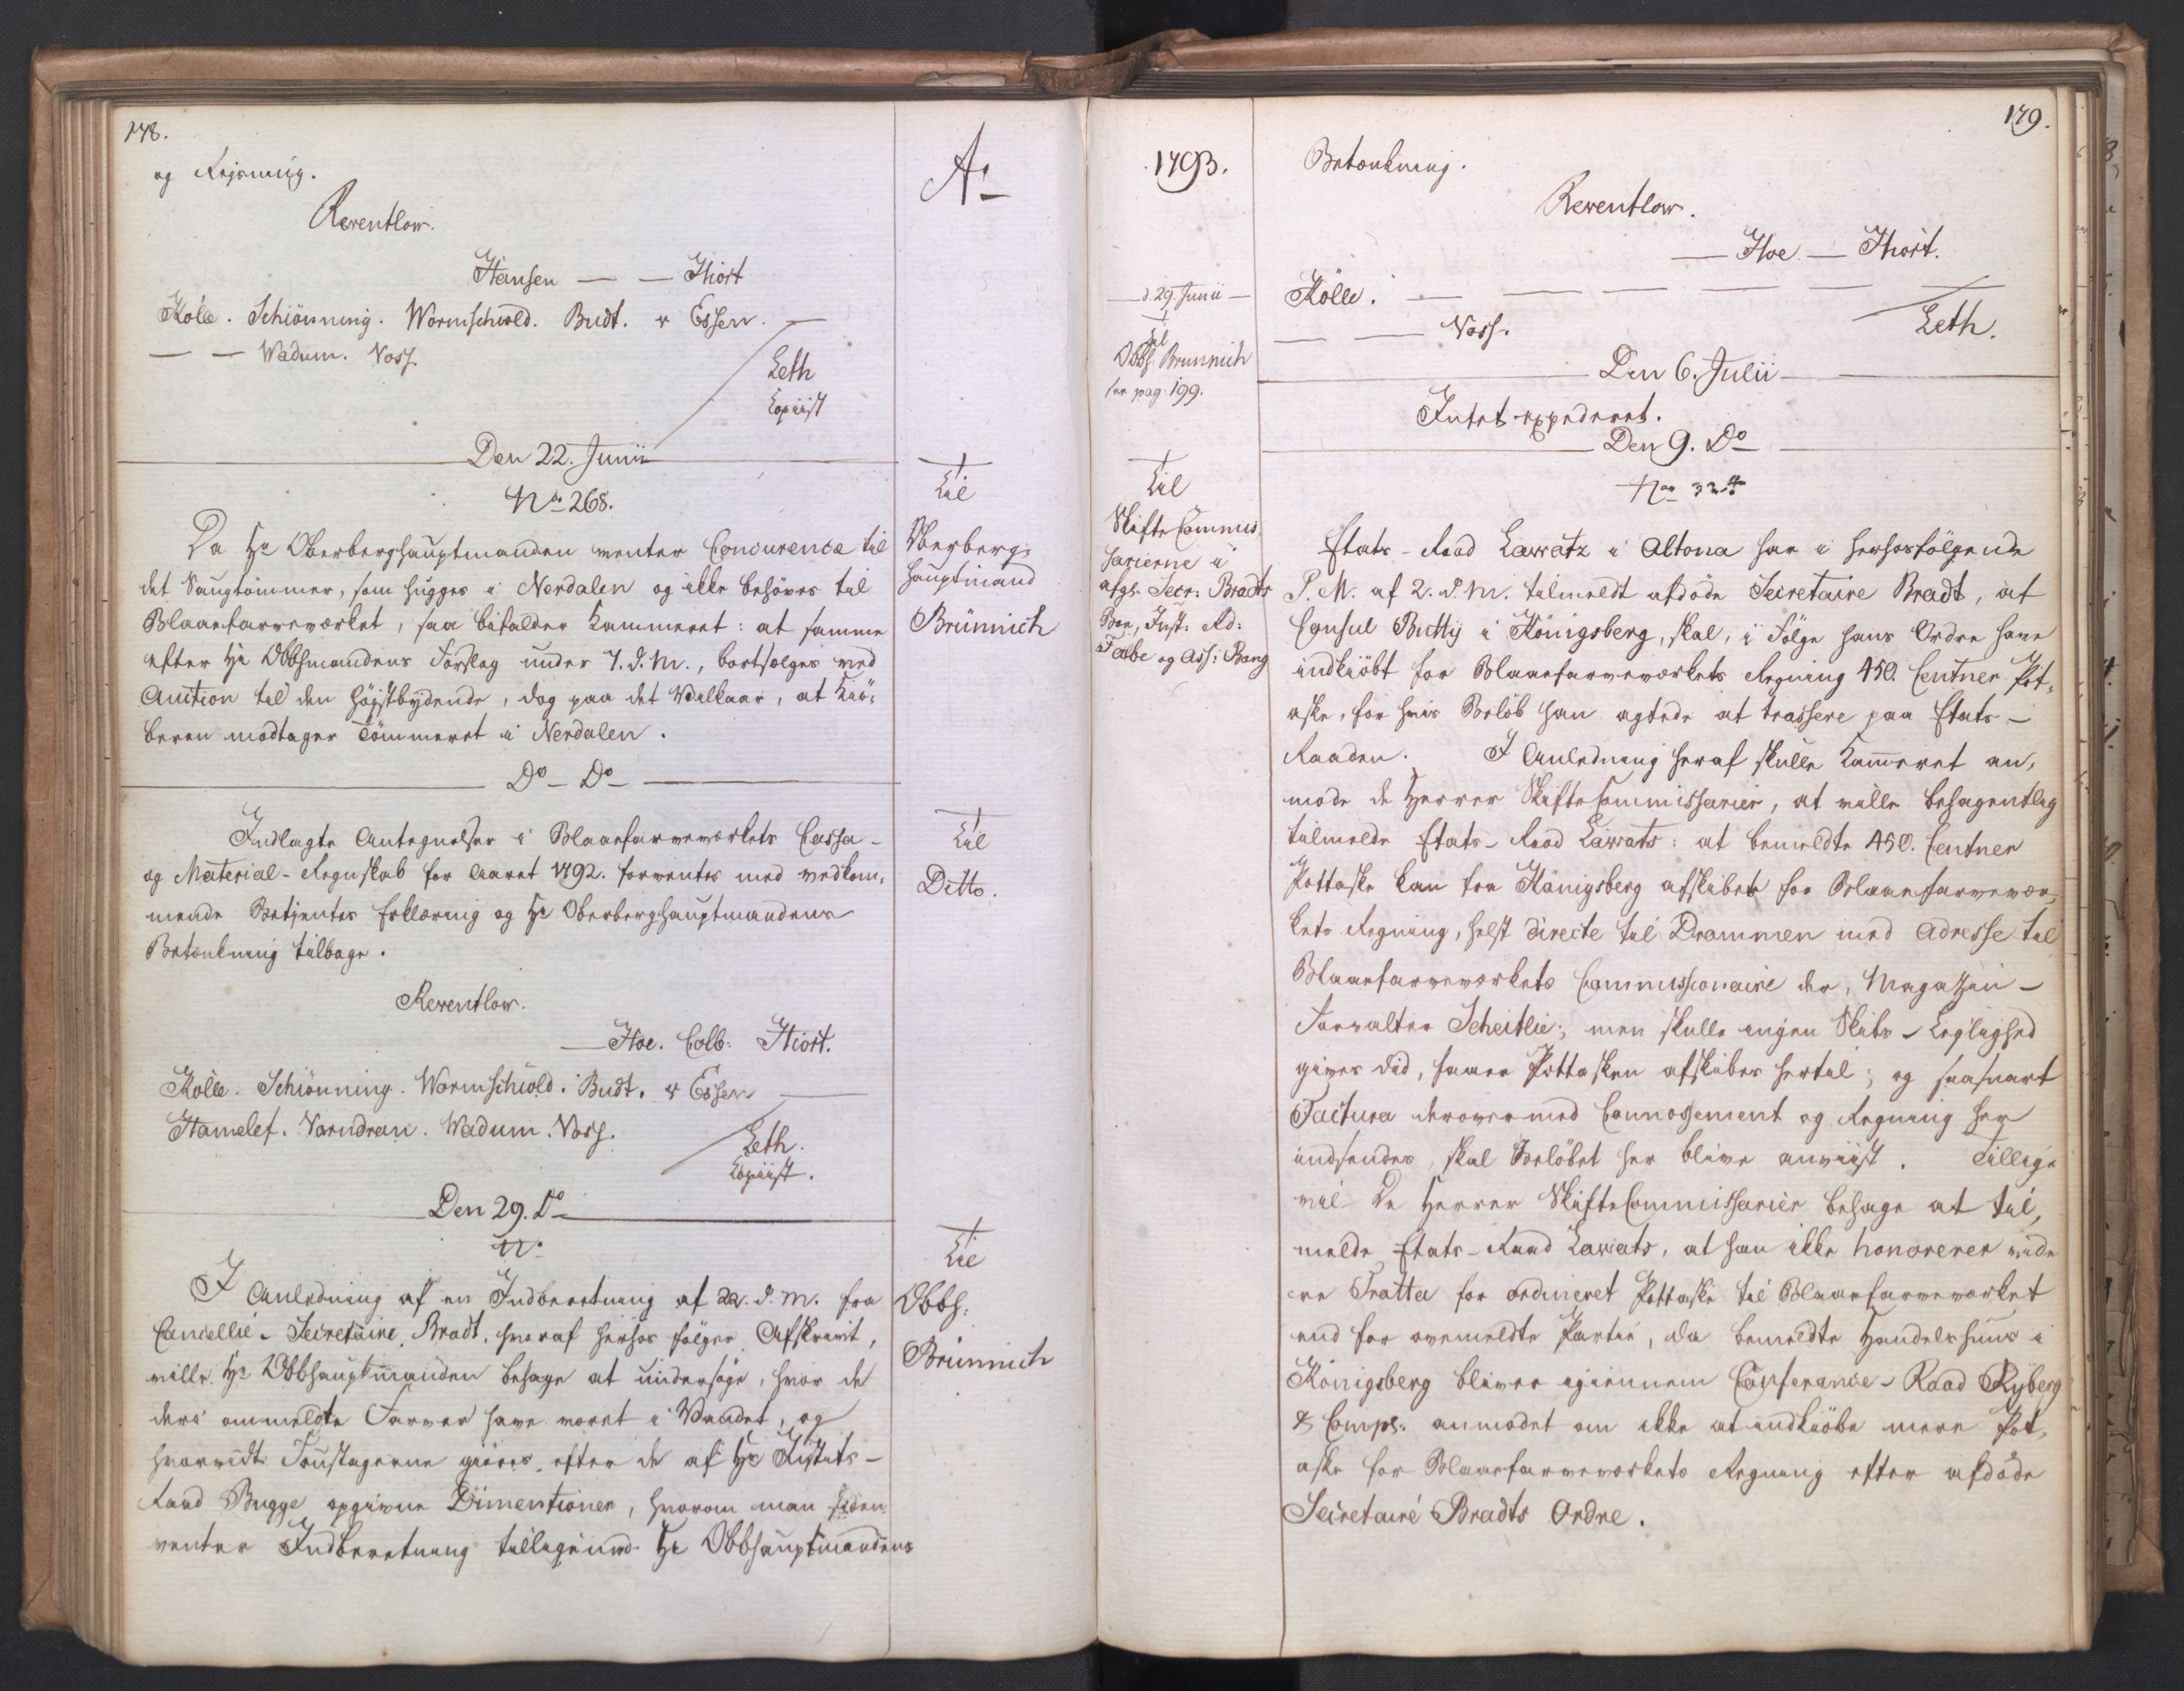 178.
og Rejsning.
Reventlow.
Hansen — — Hiort
Kölle. Schiönning. Wormschiold. Budt. v Essen. —
— — Wadum. Voss.
Leth
Copiist
Den 22. Junii
No 268.
Da Hr Oberberghauptmanden venter Concurence til
det Saugtömmer, som hugges i Nordalen og ikke behöves til
Blaaefarveværket, saa bifalder Kammeret: at samme
efter Hr Obbhmandens Forslag under 7. d. M., bortsælges ved
Auction til den höjstbydende, dog paa det Vilkaar, at Kiö-
beren modtager Tömmeret i Nordalen.
Do — Do
Indlagte Antegnelser i Blaaefarveværkets Cassa-
og Material-Regnskab for Aaret 1792. forventes med vedkom-
mende Betjentes Erklæring og Hr Oberberghauptmandens
Betænkning tilbage.
Reventlow.
— Hoe. Colb: Hiort.
Kölle. Schiönning. Wormschiold. Budt. v Essen —
Hamelef. Vorndran. Wadum. Voss.
Leth.
Copiist.
Den 29. Do
N.
I Anledning af en Indberetning af 22. d. M. fra
Cancellie-Secretaire Bradt, hvoraf herhos fölger Afskrivt,
ville Hr Obbhauptmanden behage at undersöge, hvor de
deri ommeldte Farver have været i Vandet, og
hvorvidt Foustagerne giöres efter de af Hr Justits-
Raad Bugge opgivne Dimentioner, hvorom man siden
venter Indberetning tilligemed Hr Obbhauptmandens
Ao
Til
Oberberg-
hauptmand
Brünnich
Til
Ditto.
Til
Obbh:
Brünnich
1793.
d. 29. Junii
Til
Obbh. Brünnich
see pag: 199.
Til
Skifte Commis-
sarierne i
afg. Secr: Bradts
Boe, Just: Rd:
Fabe og Ass: Bang
179.
Betænkning.
Reventlow.
— Hoe. — Hiort.
Kölle. — — — — — —
— — Voss.
Leth.
Den 6. Julii
Intet expederet.
Den 9. Do
No 324
Etats-Raad Lawatz i Altona har i herhosfölgende
P. M. af 2. d. M. tilmeldt afdöde Secretaire Bradt, at
Consul Butty i Königsberg, skal, i Fölge hans Ordre have
indkiöbt for Blaaefarveværkets Regning 450. Centner Pot-
aske, for hvis Belöb han agtede at trassere paa Etats-
Raaden. I Anledning heraf skulle Kammeret an-
mode de Herrer SkifteCommissarier, at ville behagentlig
tilmelde Etats-Raad Lawats: at bemeldte 450. Centner
Pottaske kan fra Königsberg afskibes for Blaaefarvevær-
kets Regning, helst directe til Drammen med Adresse til
Blaaefarveværkets Commissionaire der, Magazin-
Forvalter Scheitlie; men skulle ingen Skibs-Leylighed
gives did, faaer Pottasken afskibes hertil; og saasnart
Factura derover med Connossement og Regning her
indsendes, skal Belöbet her blive anviist. Tillige
vil De Herrer SkifteCommissarier behage at til-
melde Etats-Raad Lawats, at han ikke honorerer vide
re Tratta for ordineret Pottaske til Blaaefarveværket
end for ovemeldte Partie, da bemeldte Handelshuus i
Königsberg bliver igiennem Conference-Raad Ryberg
& Comps: anmodet om ikke at indkiöbe mere Pot-
aske for Blaaefarveværkets Regning efter afdöde
Secretaire Bradts Ordre.